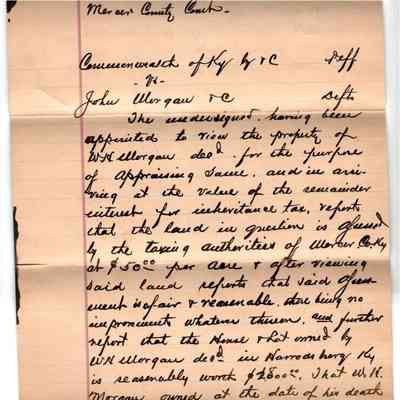 Mercer County Court.
Commonwealth of Ky by &C Plff
-Vs-
John Morgan &C Defts
The undersigned, having been
appointed to view the property of
W.H. Morgan decd. for the purpose
of appraising same, and in arri-
ving at the value of the remainder
interest for inheritance tax, reports
that the land in question is assessed
by the taxing authorities of Mercer Co. Ky
at $50.00 per acre & after viewing
said land reports that said assess-
ment is fair & reasonable, there being no
improvements whatever thereon, and further
report that the House & Lot owned by
W.H. Morgan decd in Harrodsburg Ky
is reasonably worth That W.H.
Morgan owned at the date of his death